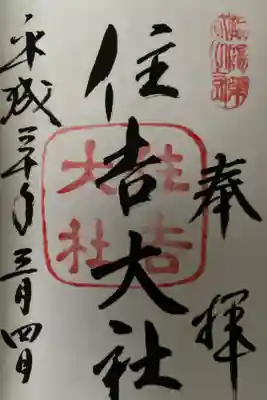 奉拝
住吉大社
住吉
大社
平成三十年三月四日